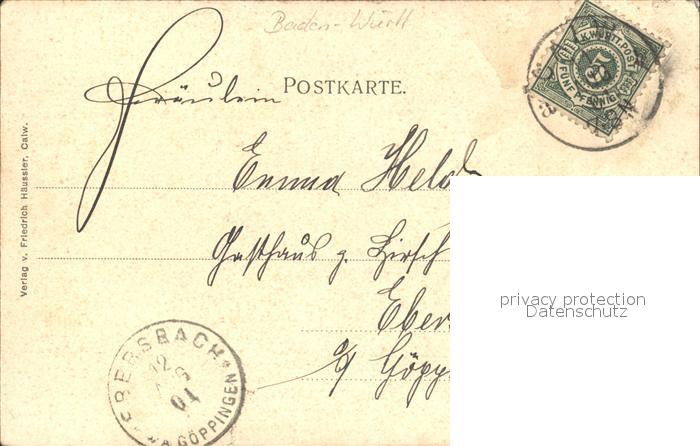 Baden-Württ
K.WÜRTT.POST
5
FÜNF PFENNIG
POSTKARTE.
Fräulein
Emma Held
Gasthaus z. Hirsch
Eber
a/ Göpp
privacy protection
Datenschutz
EBERSBACH
12
04
GÖPPINGEN
Verlag v. Friedrich Häussler, Calw.